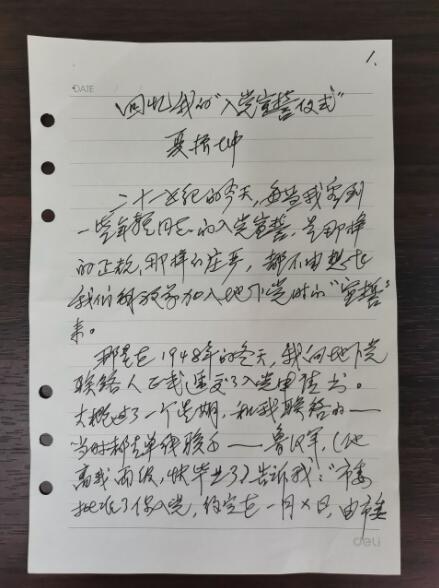 1.
DATE
回忆我的“入党宣誓仪式”
夏振坤
二十一世纪的今天,每当我看到
一些年轻同志的入党宣誓,是那样
的正规,那样的庄严,都不由想起
我们解放前加入地下党时的“宣誓”
来。
那是在1948年的冬天,我向地下党
联络人正式递交了入党申请书。
大概过了一个星期,和我联络的——
当时都是单线联系——鲁汉军,(他
高我两级,快毕业了)告诉我:“市委
批准了你入党,约定在一月×日,由市委
deli